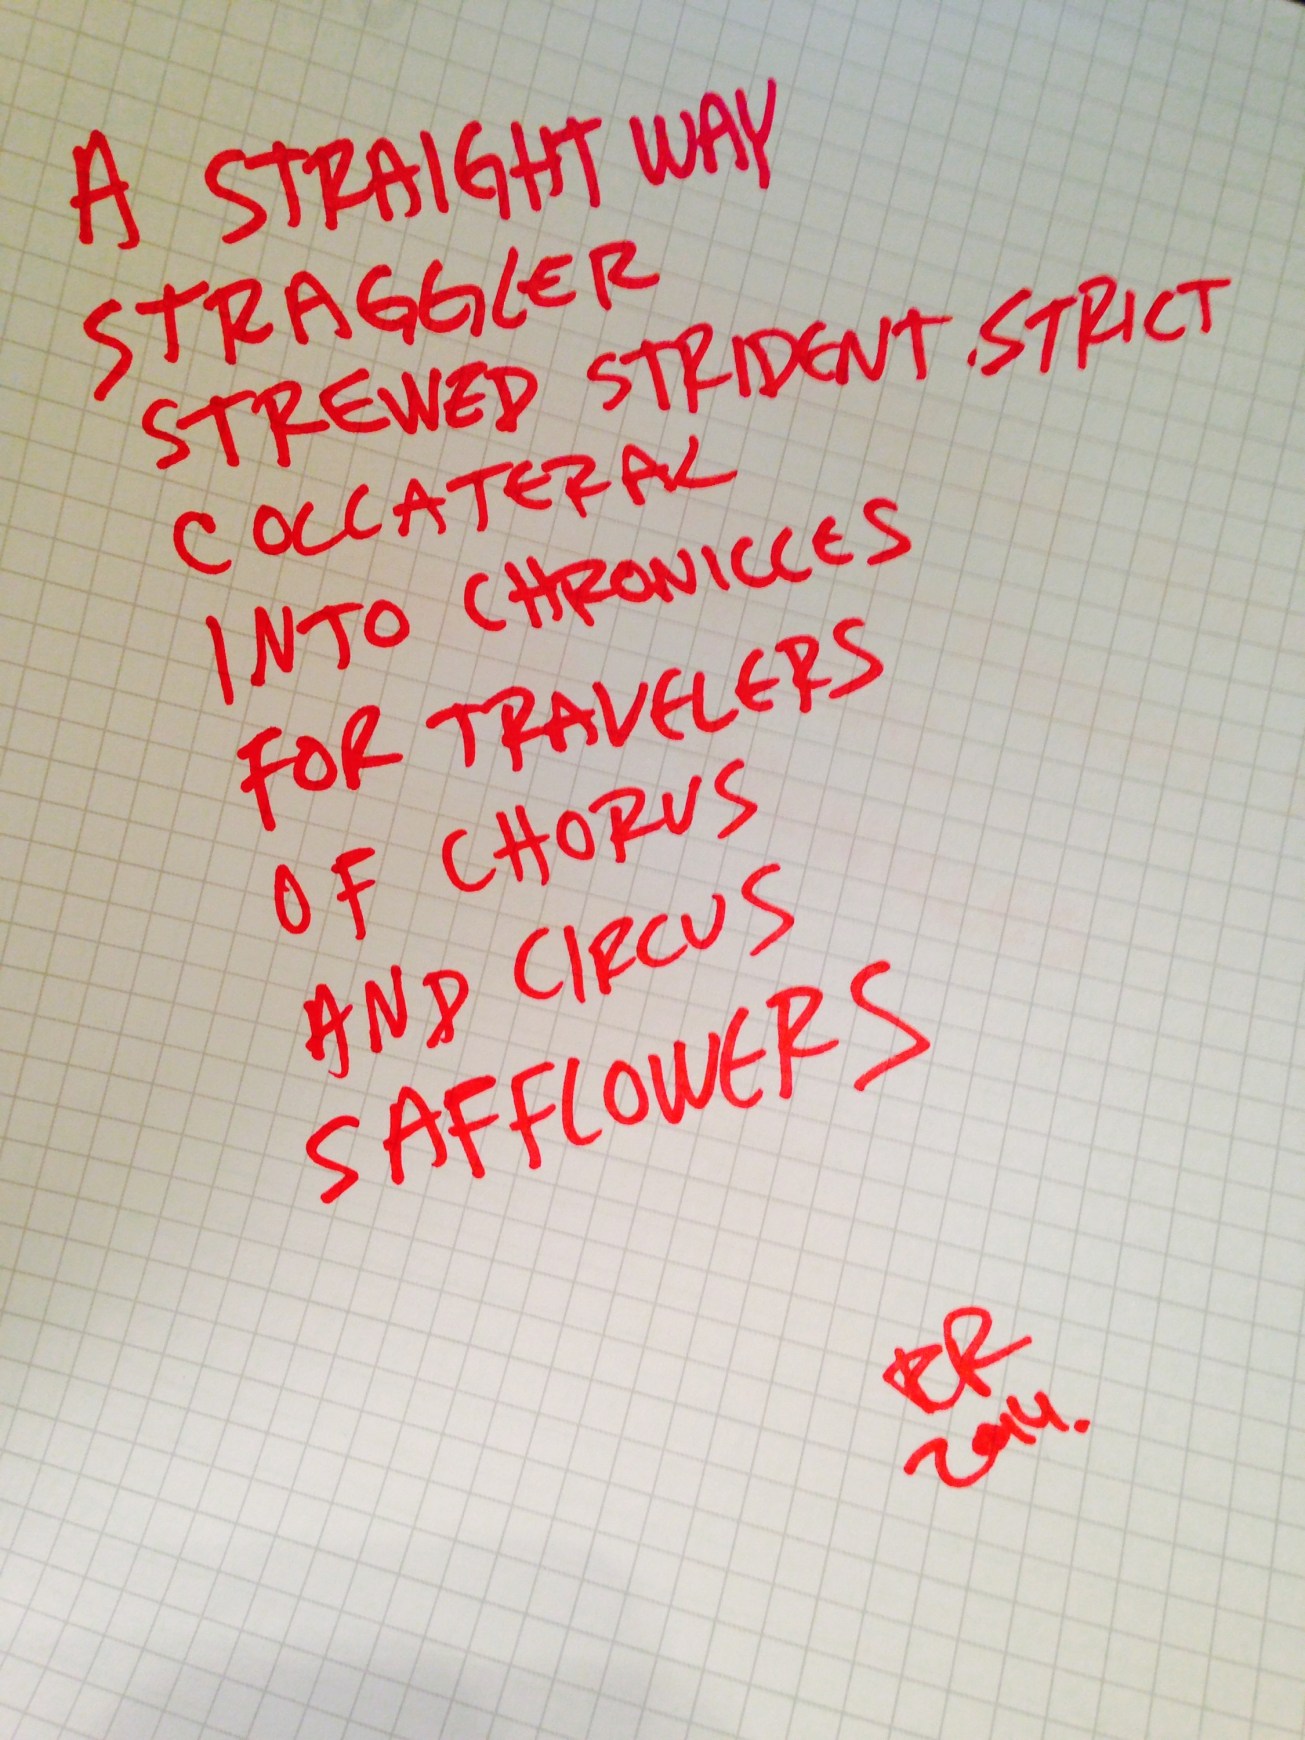 A STRAIGHT WAY
STRAGGLER
STREWED STRIDENT.STRICT
COLLATERAL
INTO CHRONICLES
FOR TRAVELERS
OF CHORUS
AND CIRCUS
SAFFLOWERS
2014.